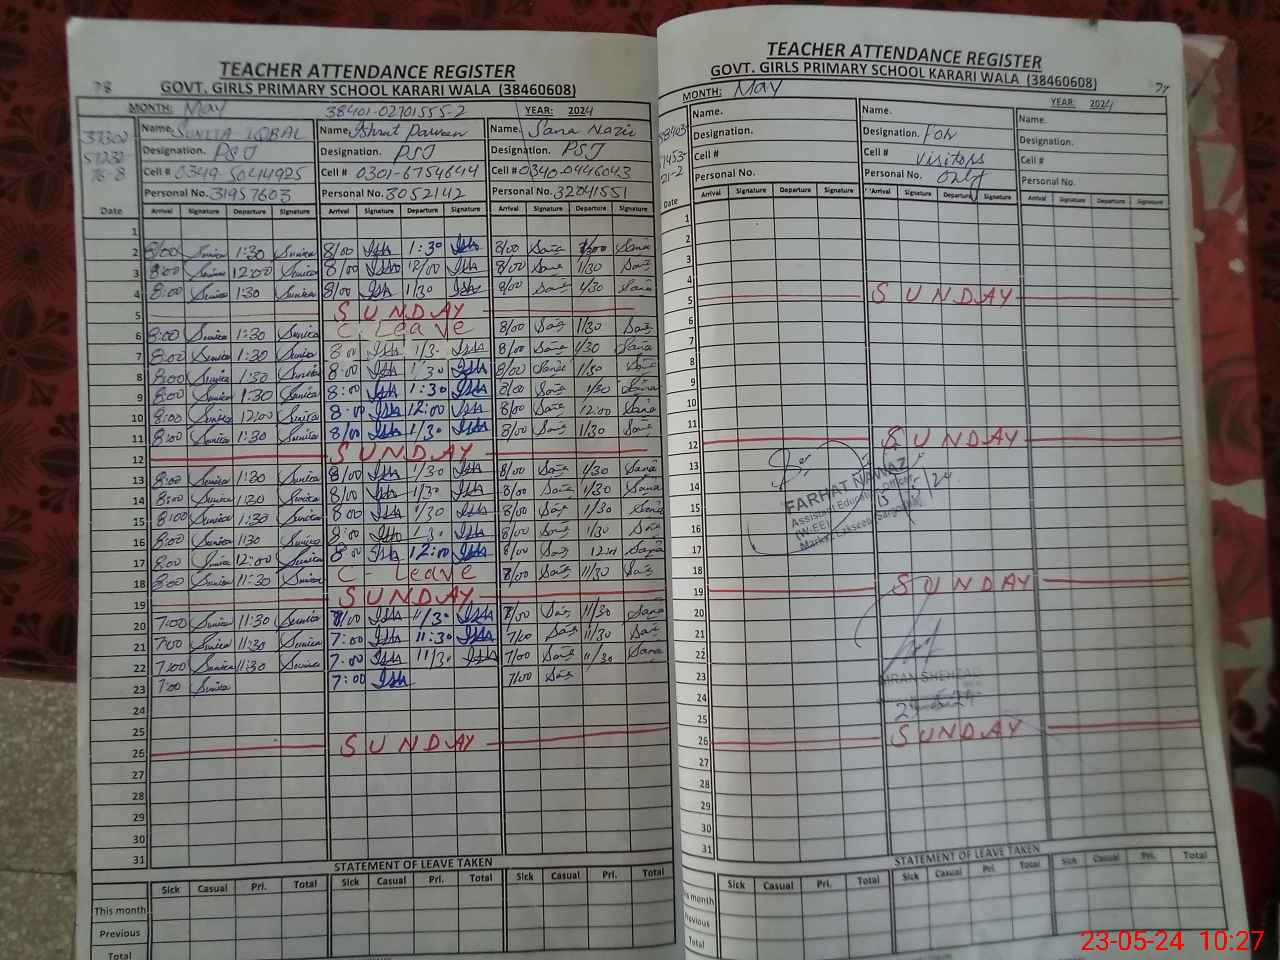 78
TEACHER ATTENDANCE REGISTER
GOVT. GIRLS PRIMARY SCHOOL KARARI WALA (38460608)
MONTH: May 38401-02701555-2 YEAR: 2024
Name. SUNITA IQBAL Name. Ishrat Parveen Name. Sana Nazir
Designation. PST Designation. PST Designation. PST
Cell # 0349-5044925 Cell # 0301-6754644 Cell # 0340-0446043
Personal No. 31957603 Personal No. 3052142 Personal No. 32041551
Date Arrival Signature Departure Signature Arrival Signature Departure Signature Arrival Signature Departure Signature
1
2 8/00 Sunita 1:30 Sunita 8/00 Ish 1:30 Ish 8/00 Sana Sana
3 8:00 Sunita 12:00 Sunita 8/00 Ish 12/00 Ish 8/00 Sana 1/30 Sana
4 8:00 Sunita 1:30 Sunita 8/00 Ish 1/30 Ish 8/00 Sana 1/30 Sana
5 SUNDAY
6 8:00 Sunita 1:30 Sunita C. Leave 8/00 Sana 1/30 Sana
7 8:00 Sunita 1:30 Sunita 8:00 Ish 1/30 Ish 8/00 Sana 1/30 Sana
8 8:00 Sunita 1:30 Sunita 8:00 Ish 1/30 Ish 8/00 Sana 1/30 Sana
9 8:00 Sunita 1:30 Sunita 8:00 Ish 1:30 Ish 8/00 Sana 1/30 Sana
10 8:00 Sunita 12:00 Sunita 8:00 Ish 12:00 Ish 8/00 Sana 12:00 Sana
11 8:00 Sunita 1:30 Sunita 8:00 Ish 1/30 Ish 8/00 Sana 1/30 Sana
12 SUNDAY
13 8:00 Sunita 1:30 Sunita 8/00 Ish 1/30 Ish 8/00 Sana 1/30 Sana
14 8:00 Sunita 1:30 Sunita 8/00 Ish 1/30 Ish 8/00 Sana 1/30 Sana
15 8:00 Sunita 1:30 Sunita 8:00 Ish 1/30 Ish 8/00 Sana 1/30 Sana
16 8:00 Sunita 1:30 Sunita 8:00 Ish 1:30 Ish 8/00 Sana 1/30 Sana
17 8:00 Sunita 12:00 Sunita 8:00 Ish 12:00 Ish 8/00 Sana 12:00 Sana
18 8:00 Sunita 11:30 Sunita C- Leave 7/00 Sana 11/30 Sana
19 SUNDAY
20 7:00 Sunita 11:30 Sunita 7/00 Ish 11/30 Ish 7/00 Sana 11/30 Sana
21 7:00 Sunita 11:30 Sunita 7:00 Ish 11:30 Ish 7/00 Sana 11/30 Sana
22 7:00 Sunita 11:30 Sunita 7:00 Ish 11/30 Ish 7/00 Sana 11/30 Sana
23 7:00 Sunita 7:00 Ish 7/00 Sana
24
25
26 SUNDAY
27
28
29
30
31
STATEMENT OF LEAVE TAKEN
Sick Casual Pri. Total Sick Casual Pri. Total Sick Casual Pri. Total
This month
Previous
Total
TEACHER ATTENDANCE REGISTER
GOVT. GIRLS PRIMARY SCHOOL KARARI WALA (38460608)
MONTH: May YEAR: 2024
Name. Name. Name.
Designation. Designation. For Designation.
Cell # Cell # visitors Cell #
Personal No. Personal No. only Personal No.
Date Arrival Signature Departure Signature Arrival Signature Departure Signature Arrival Signature Departure Signature
1
2
3
4
5 SUNDAY
6
7
8
9
10
11
12 SUNDAY
13
14 FARHAT NAWAZ
15 Assistant Education Officer
16 (W-EE)
17 Markaz
18
19 SUNDAY
20
21
22
23
24
25
26 SUNDAY
27
28
29
30
31
STATEMENT OF LEAVE TAKEN
Sick Casual Pri. Total Sick Casual Pri. Total Sick Casual Pri. Total
This month
Previous
Total
23-05-24 10:27